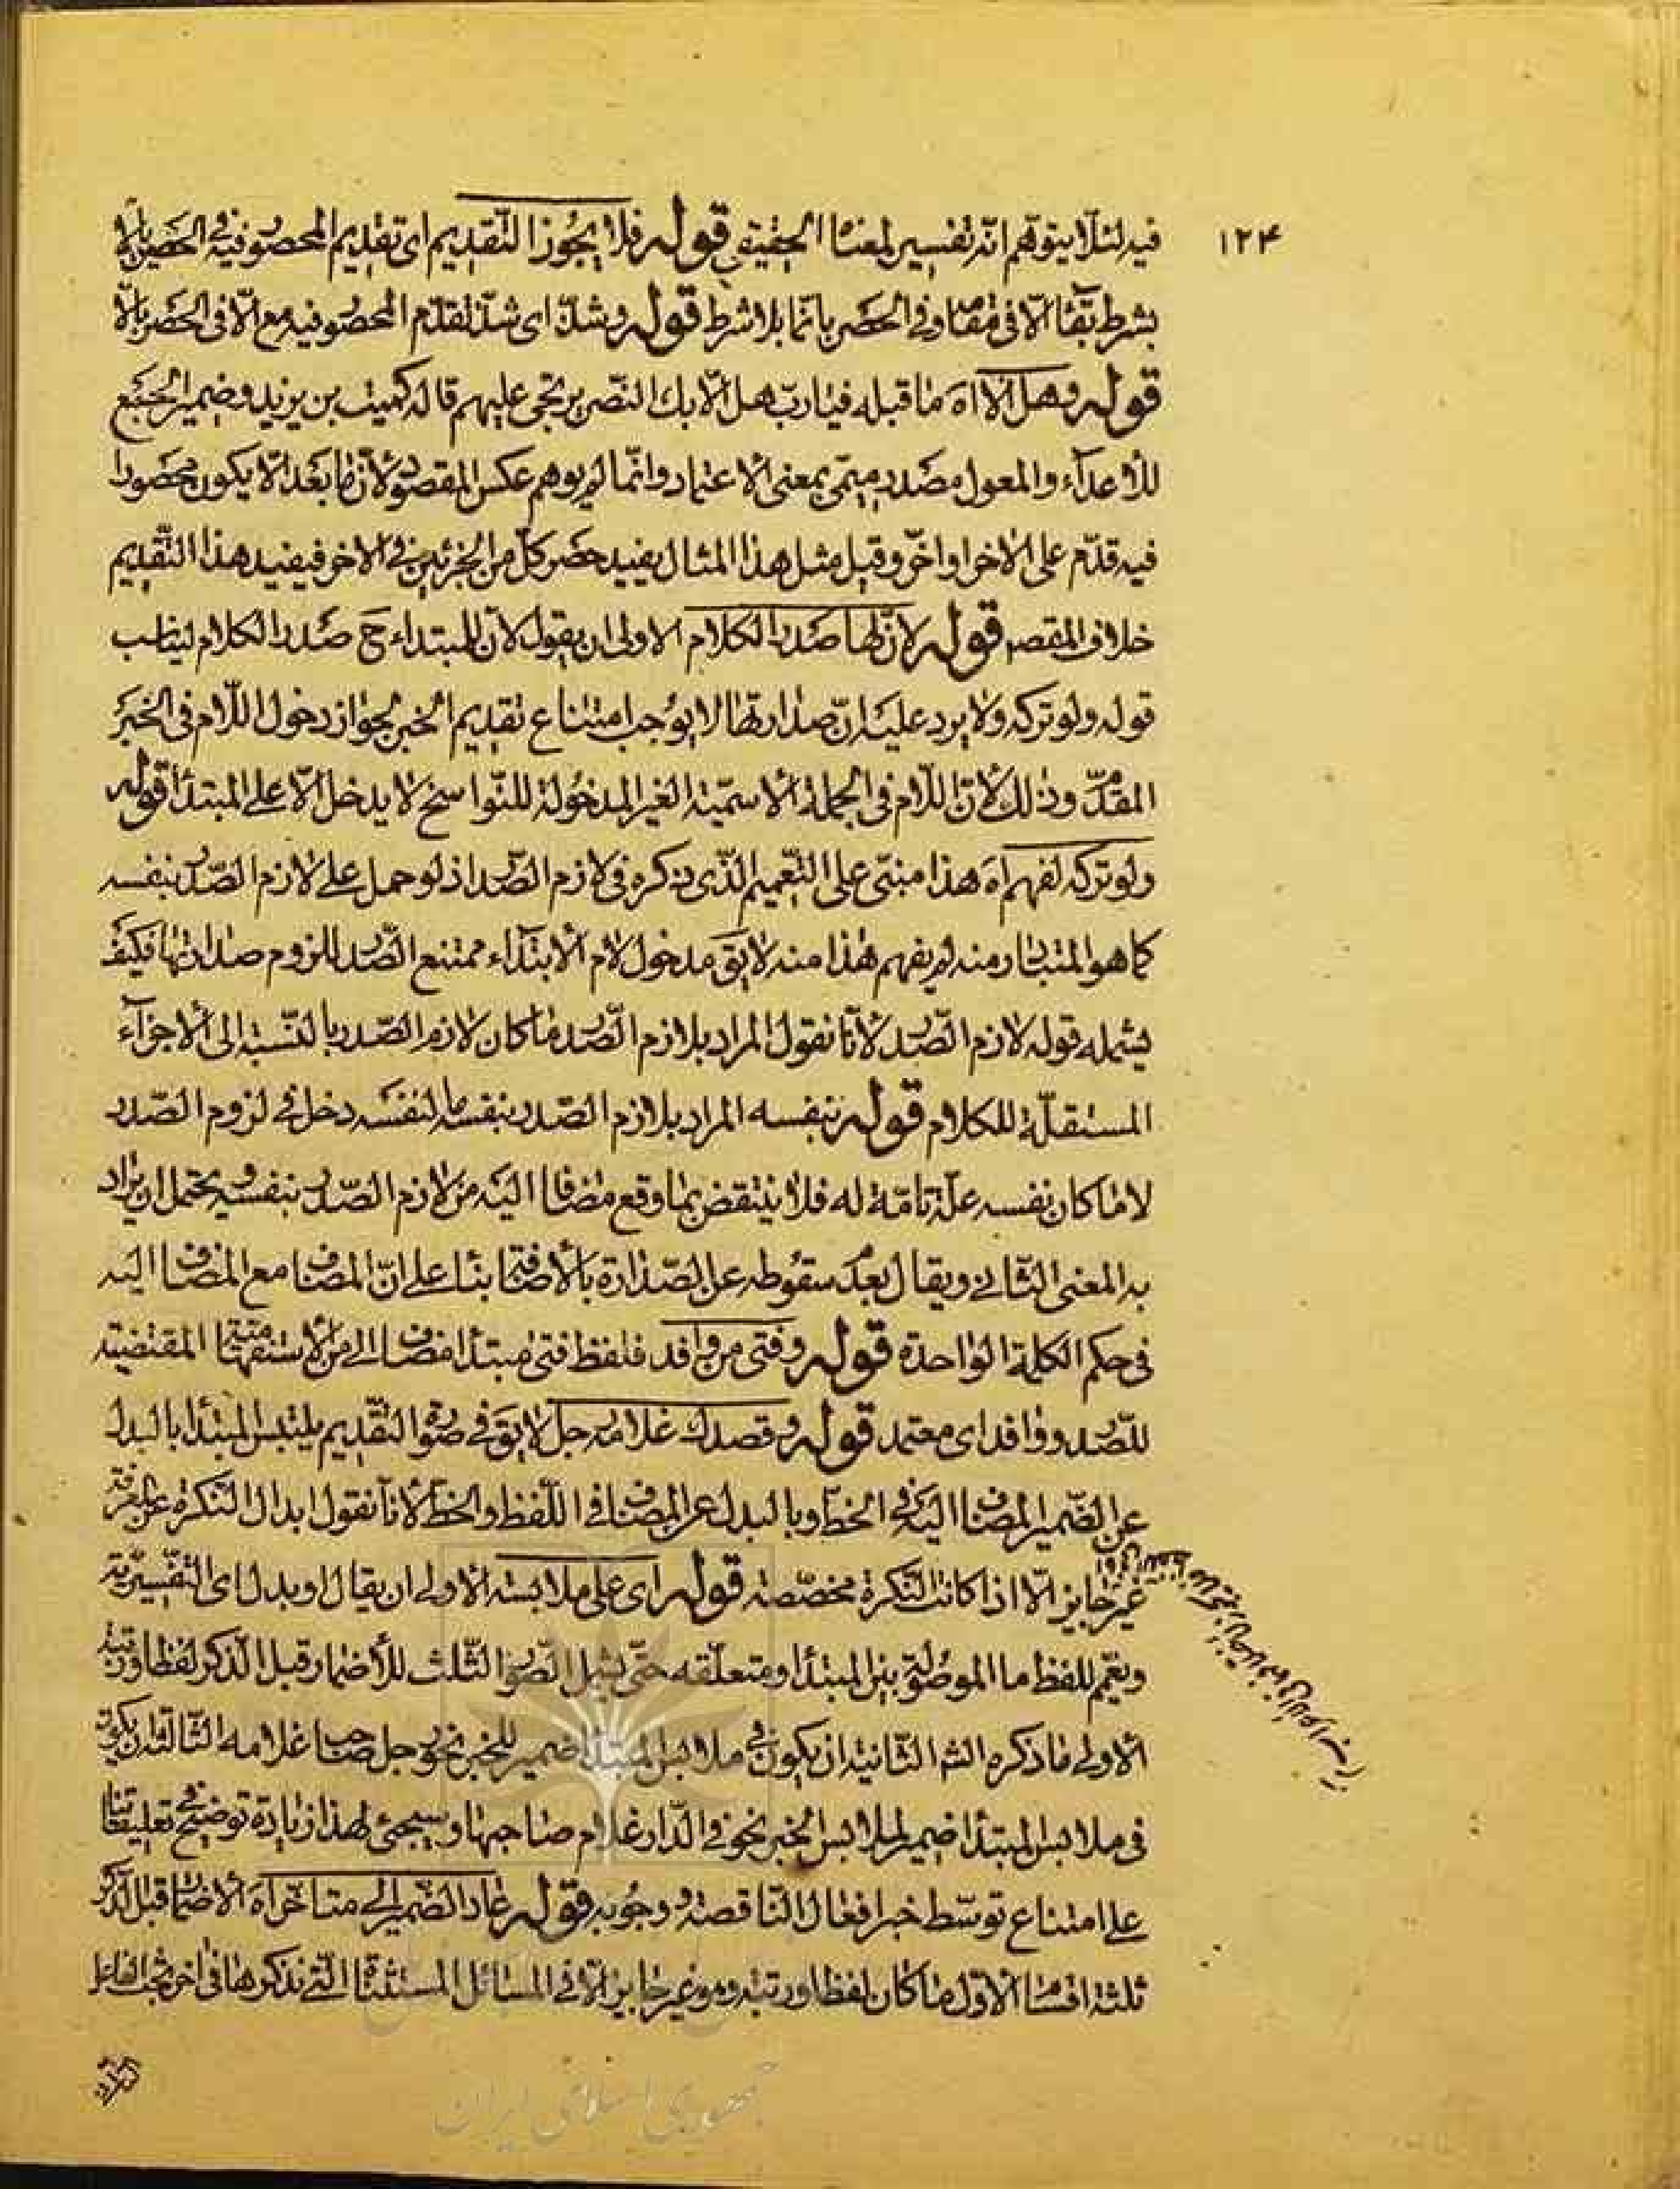 ١٢۴
فيه لئلا يتوهم انّه تفسير لمعنا الحقيقى قوله فلا يجوز التقديم اى تقديم المحصور فيه فى الحصر بالا
بشرط بقاء الّا فى مقامه و فى الحصر بانّما بلا شرط قوله و شذّ اى شذّ تقدّم المحصور فيه مع الّا فى الحصر بالّا
قوله و هل الا اه ما قبله فيا ربّ هل الّا بك النصر يرتجى عليهم قاله كميت بن يزيد و ضمير الجمع
للأعداء و المعول مصدر ميمى بمعنى الاعتماد و انّما لم يوهم عكس المقصود لأنّ ما بعد الّا يكون محصورا
فيه قدّم على الاخر او اخّر و قيل مثل هذا المثال يفيد حصر كلّ من الجزئين فى الاخر فيفيد هذا التقديم
خلاف المقصم قوله لانّ لها صدر الكلام الاولى ان يقول لانّ للمبتداء ح صدر الكلام ليناسب
قوله و لو تركه و لا يرد عليه انّ صدارتها لا يوجب امتناع تقديم الخبر لجواز دخول اللّام فى الخبر
المقدّم و ذلك لأنّ اللّام فى الجملة الاسميّة الغير المدخولة للنّواسخ لا يدخل الّا على المبتدأ قوله
و لو تركه لفهم اه هذا مبنىّ على التّعميم الّذى ذكره فى لازم الصّدر اذ لو حمل على لازم الصّدر بنفسه
كما هو المتبادر منه لم يفهم هذا منه لا يق مدخول لام الابتداء ممتنع الصّدر للزوم صدارتها فكيف
يشمله قوله لازم الصّدر لأنّا نقول المراد بلازم الصّدر ما كان لازم الصّدر بالنّسبة الى الاجزاء
المستقلّة للكلام قوله بنفسه المراد بلازم الصّدر بنفسه ما لنفسه دخل فى لزوم الصّدر
لا ما كان نفسه علّة تامّة له فلا ينتقض بما وقع مضافا اليه من لازم الصّدر بنفسه و يحتمل ان يراد
به المعنى الثانى و يقال بعدم سقوطه عن الصّدارة بالاضافة بناء على انّ المضاف مع المضاف اليه
فى حكم الكلمة الواحدة قوله و فتى من وافد فلفظ فتى مبتدأ مضاف الى من الاستفهاميّة المقتضية
للصّدر و وافد اى معتمد قوله و قصدك غلامه رجل لا يق فى صورة التّقديم يلتبس المبتدأ بالبدل
عن الضّمير المضاف اليه فى الخطّ و بالبدل عن المضاف فى اللّفظ و الخطّ لأنّا نقول ابدال النّكرة عن المعرفة
غير جايز الّا اذا كانت النّكرة مخصّصة قوله اى على ملابسته الاولى ان يقال او بدل اى التّفسيريّة
و يعمّم للفظ ما الموصولة بين المبتدأ و متعلّقه حتّى يشمل الصّور الثّلث للأضمار قبل الذّكر لفظا و رتبة
الاولى ما ذكره الش الثّانية ان يكون فى ملابس المبتدأ ضمير للخبر نحو رجل صاحب غلامه الثّالثة ان يكون
فى ملابس المبتدأ ضمير لملابس الخبر نحو فى الدّار غلام صاحبها و سيجئ لهذا زيادة توضيح فى تعليقاتنا
على امتناع توسّط خبر افعال النّاقصة و وجوبه قوله عاد الضّمير الى متاخّر اه الاضمار قبل الذّكر
ثلثة اقسام الاوّل ما كان لفظا و رتبة و هو غير جايز الّا فى المسائل المستثناة الّتى نذكرها فى اخر بحث الفاعل
جمهورى اسلامى ايران